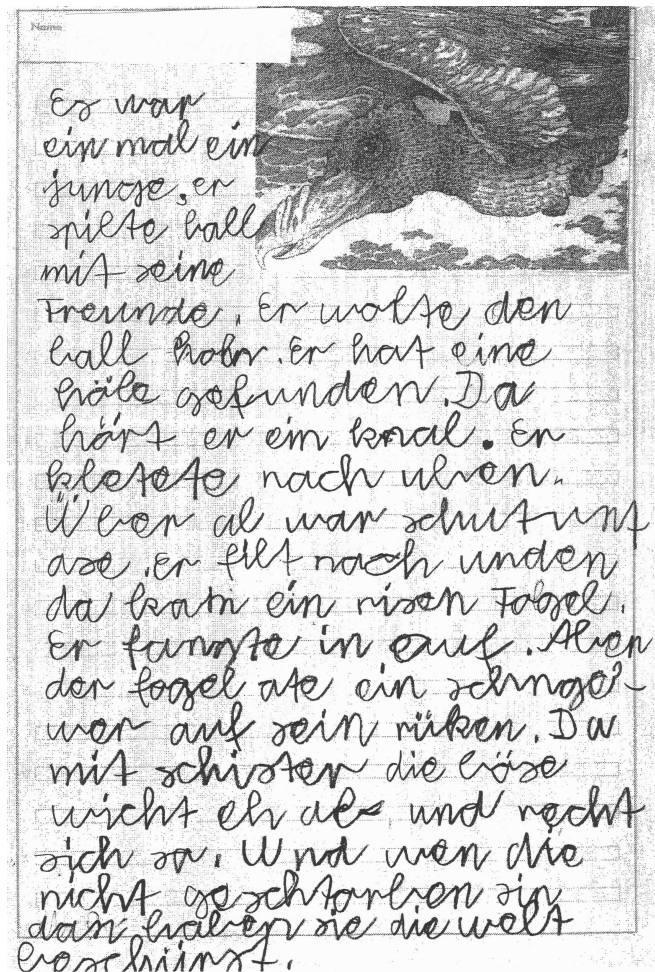 Name
Es war
ein mal ein
junge, er
spilte ball
mit seine
Freunde. Er wolte den
ball holn. Er hat eine
häle gefunden. Da
härt er ein knal. Er
kletete nach uben.
Über al war schut unt
ase. er fllt nach unden
da kam ein risen Fogel.
Er fangte in auf. Aber
der fogel ate ein schnge-
wer auf sein rüken. Da
mit schister die böse
wicht eh ab und recht
sich so. Und wen die
nicht geschtorben sin
dan haben sie die welt
beschünst.